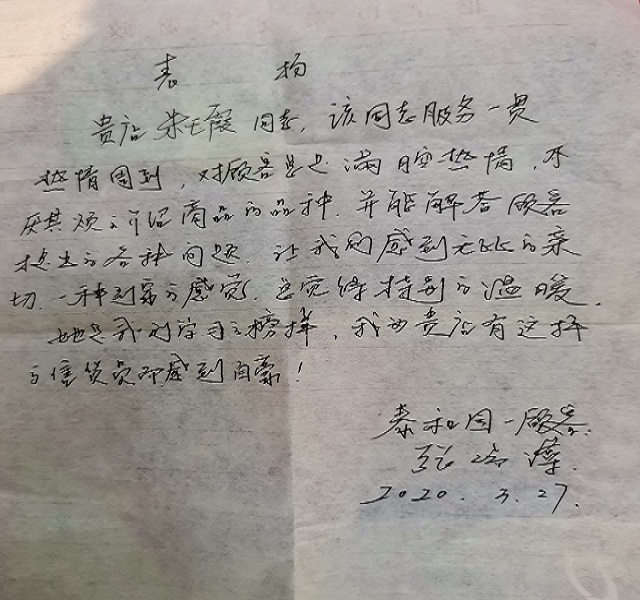 表扬
贵店朱七霞同志,该同志服务一贯
热情周到,对顾客总是满腔热情,不
厌其烦的介绍商品的品种.并能解答顾客
提出的各种问题.让我们感到无比的亲
切.一种到家的感觉.总觉得特别的温暖.
她是我们学习的榜样,我为贵店有这样
的售货员而感到自豪!
泰和园一顾客:
2020.3.27.